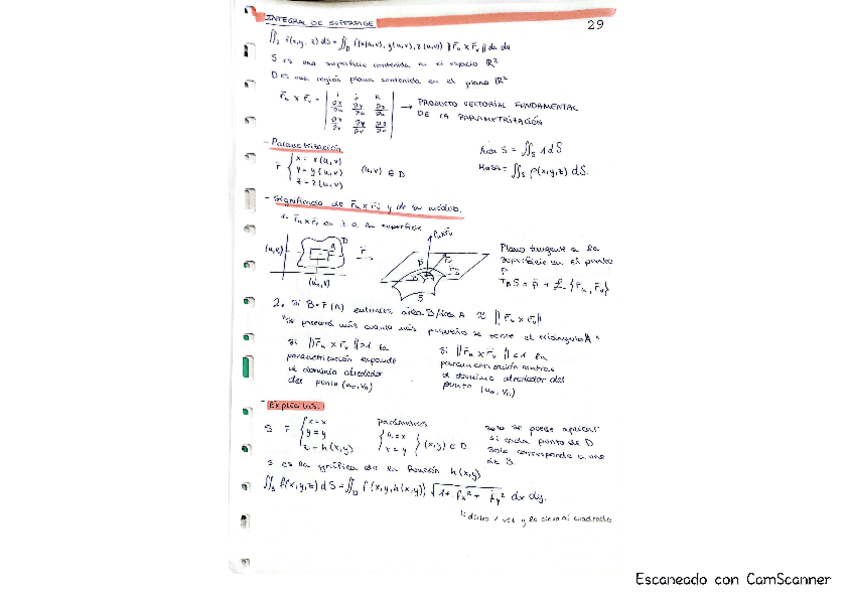 INTEGRAL DE SUPERFICIE
29
∬_S f(x,y,z) dS = ∬_D f(x(u,v), y(u,v), z(u,v)) ||r̄u x r̄v|| du dv
S es una superficie contenida en el espacio ℝ³
D es una región plana contenida en el plano ℝ²
r̄u x r̄v = | i j k |
→ PRODUCTO VECTORIAL FUNDAMENTAL
DE LA PARAMETRIZACIÓN
- Parametrización
r̄ { x = x(u,v)
y = y(u,v) (u,v) ∈ D
z = z(u,v)
Área S = ∬_S 1 dS
Masa = ∬_S ρ(x,y,z) dS.
- Significado de r̄u x r̄v y de su módulo.
1. r̄u x r̄v es ⊥ a la superficie
(u,v)
D
A
r̄
r̄u x r̄v
Plano tangente a la
superficie en el punto
P
2. Si B = r̄(A) entonces área B/área A ≈ ||r̄u x r̄v||
Si ||r̄u x r̄v|| > 1 la
parametrización expande
el dominio alrededor
del punto (u₀,v₀)
Si ||r̄u x r̄v|| < 1 la
parametrización contrae
el dominio alrededor del
punto (u₀,v₀)
- Explícitas.
S r̄ { x = x
y = y
z = h(x,y)
parámetros
{ u = x
v = y } (x,y) ∈ D
solo se puede aplicar
si cada punto de D
solo corresponde a uno
de S.
S es la gráfica de la función h(x,y)
∬_S f(x,y,z) dS = ∬_D f(x,y,h(x,y)) √(1 + fx² + fy²) dx dy.
y lo elevo al cuadrado
Escaneado con CamScanner